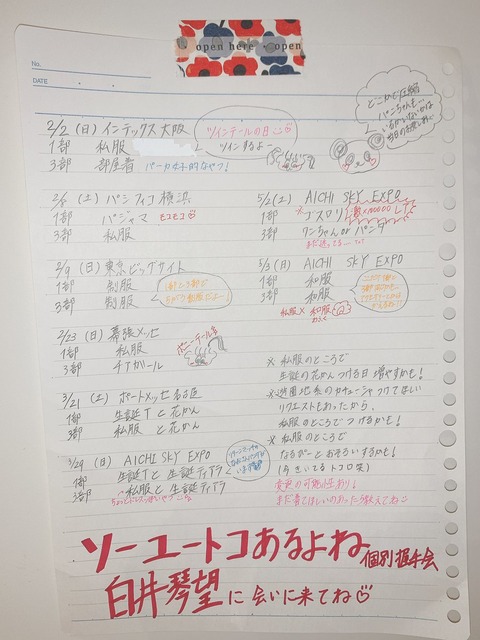 open here
open
No.
DATE
どこかで圧縮
パンちゃんも…
いるかいないかは
当日のお楽しみに
2/2 (日) インテックス大阪
1部 私服
3部 部屋着 パーカーみたい的なやつ!
ツインテールの日
ツインするよ〜
2/8 (土) パシフィコ横浜
1部 パジャマ モコモコ
3部 私服
2/9 (日) 東京ビッグサイト
1部 制服
3部 制服
1部と3部で
ちがう制服だよー!
2/23 (日) 幕張メッセ
1部 私服
3部 チアガール
ポニーテール
3/21 (土) ポートメッセ名古屋
1部 生誕Tと花かん
3部 私服と花かん
3/29 (日) AICHI SKY EXPO
1部 生誕Tと生誕ティアラ
3部 私服と生誕ティアラ
5/2 (土) AICHI SKY EXPO
1部 ※ゴスロリ
3部 ワンちゃん or パンダ
まだ迷ってる
5/3 (日) AICHI SKY EXPO
1部 和服
3部 和服
私服×和服
わふく
※ 私服のところで
生誕の花かんつける日増やすかも!
※ 遊園地系のカチューシャつけてほしい
リクエストもあったから、
私服のところでつけるかも!
※ 私服のところで
なるぴーとおそろいするかも!
(今きいてるトコロ笑)
変更の可能性あり!
まだ着てほしいのあったら教えてね
ソーユートコあるよね 個別握手会
白井琴望に会いに来てね